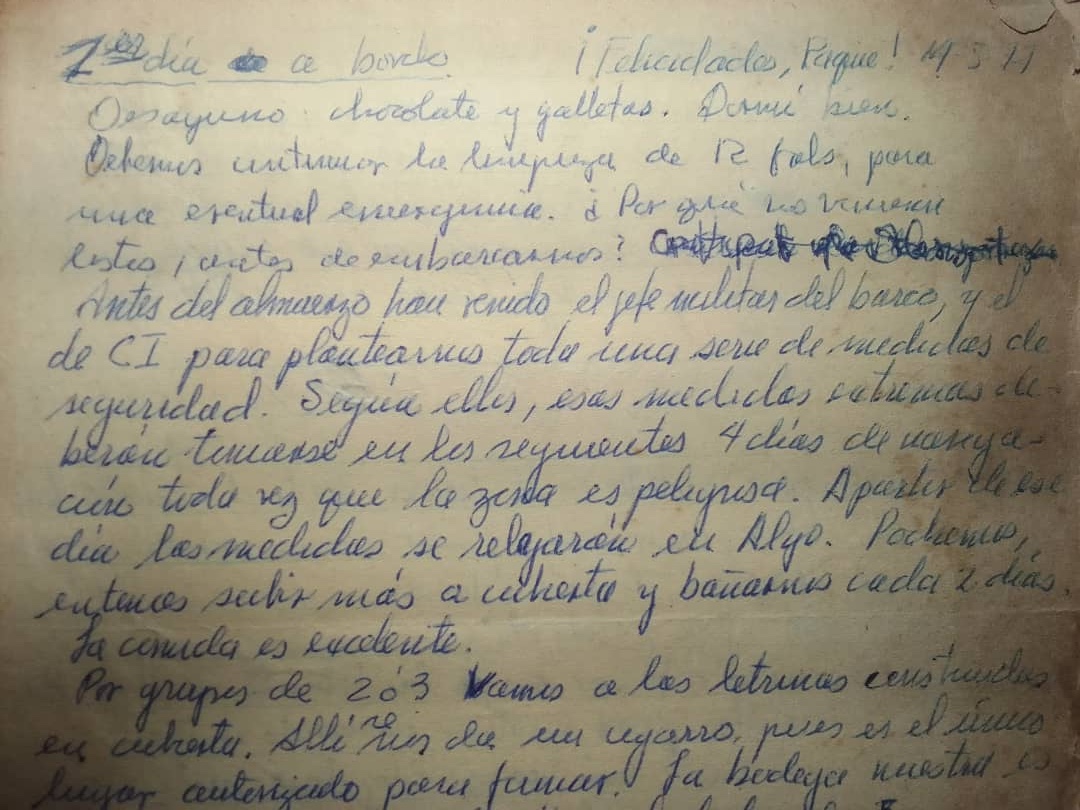 1er día a bordo. ¡Felicidades, Paque! 19 3 77
Desayuno: chocolate y galletas. Dormí bien.
Debemos continuar la limpieza de 12 fals, para
una eventual emergencia. ¿Por qué no vinieron
listos, antes de embarcarnos?
Antes del almuerzo han venido el jefe militar del barco, y el
de CI para plantearnos toda una serie de medidas de
seguridad. Según ellos, esas medidas extremas de-
berán tomarse en los siguientes 4 días de navega-
ción toda vez que la zona es peligrosa. A partir de ese
día las medidas se relajarán en Algo. Podremos,
entonces subir más a cubierta y bañarnos cada 2 días.
La comida es excelente.
Por grupos de 2 ó 3 vamos a las letrinas construidas
en cubierta. Allí se nos da un cigarro, pues es el único
lugar autorizado para fumar. La bodega nuestra es